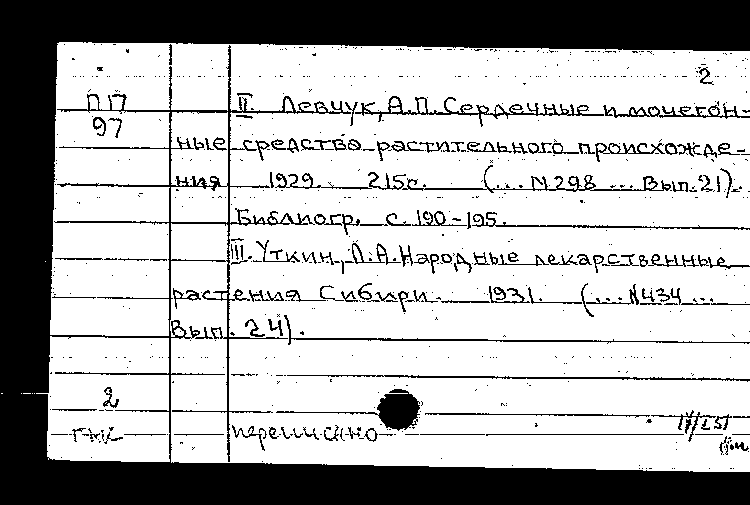 2
П17
97
II. Левчук, А.П. Сердечные и мочегон-
ные средства растительного происхожде-
ния 1929. 215с. (... N298 ... Вып.21).
Библиогр. с. 190-195.
III. Уткин, Л.А. Народные лекарственные
растения Сибири. 1931. (... N434 ...
Вып. 24).
2
переписано